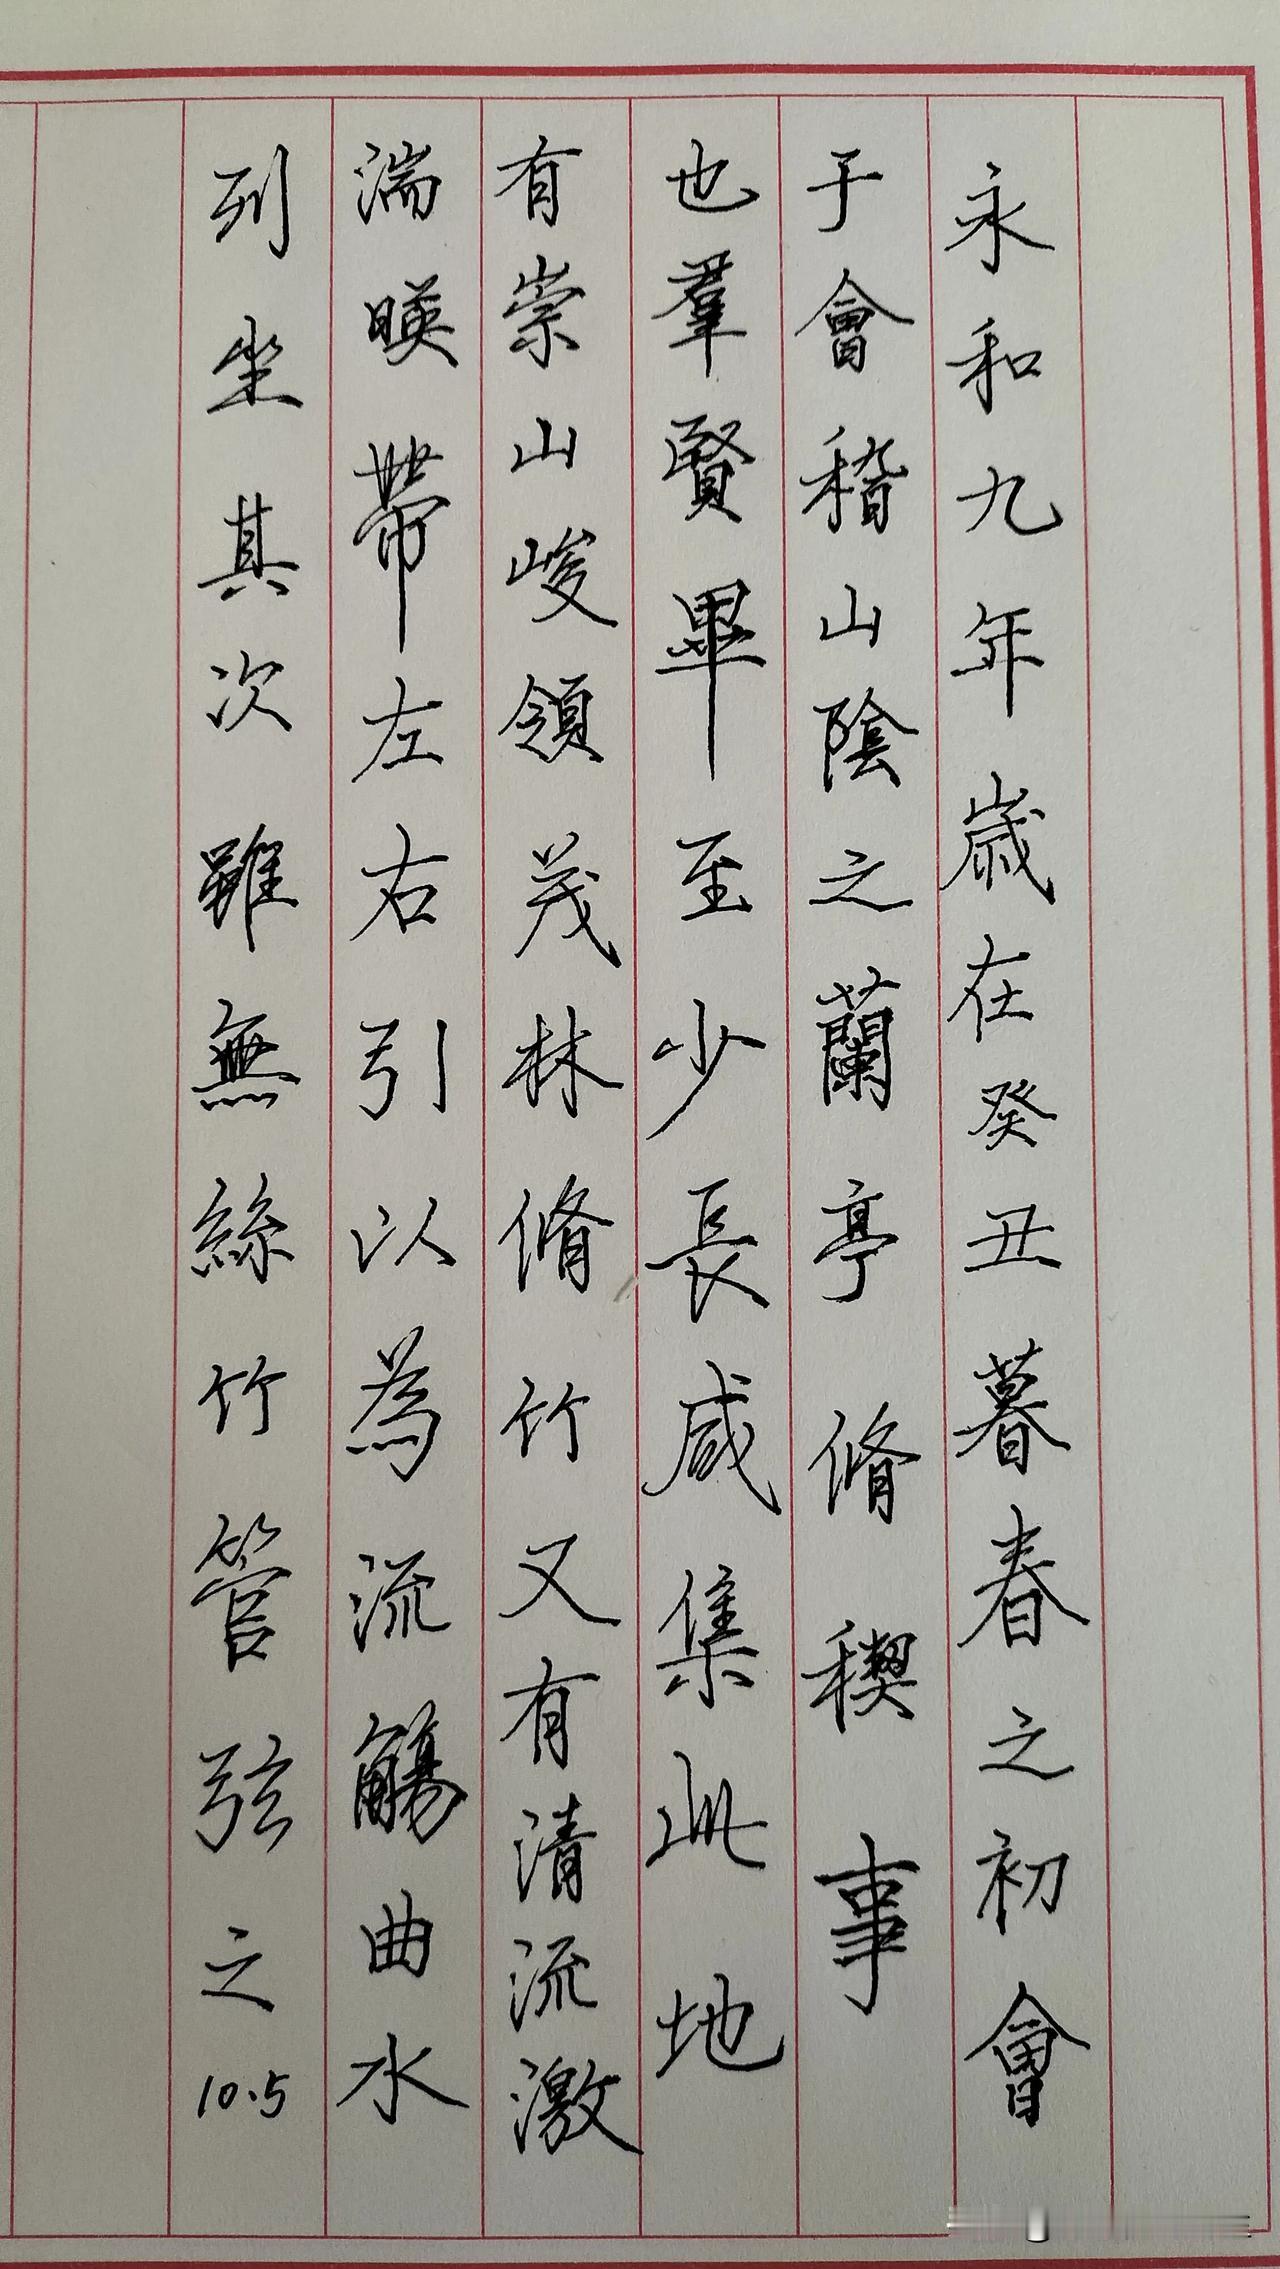 永和九年歲在癸丑暮春之初會
于會稽山陰之蘭亭脩稧事
也羣賢畢至少長咸集此地
有崇山峻領茂林脩竹又有清流激
湍暎帶左右引以為流觴曲水
列坐其次雖無絲竹管弦之
10.5